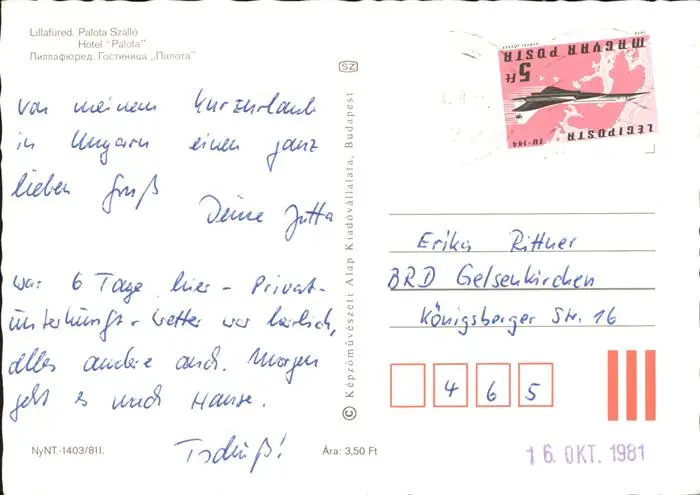 Lillafüred. Palota Szálló
Hotel "Palota"
Лиллафюред. Гостиница „Палота"
SZ
von meinem Kurzurlaub
in Ungarn einen ganz
lieben Gruß
Deine Jutta
war 6 Tage hier - Privat-
unterkunft - Wetter war herrlich,
alles andere auch. Morgen
geht es nach Hause.
Tschüß!
NyNT.-1403/811.
Ára: 3,50 Ft
© Képzőművészeti Alap Kiadóvállalata, Budapest
MAGYAR POSTA
5 Ft
LÉGIPOSTA
TU-144
Erika Rittner
BRD Gelsenkirchen
Königsberger Str. 16
465
16. OKT. 1981